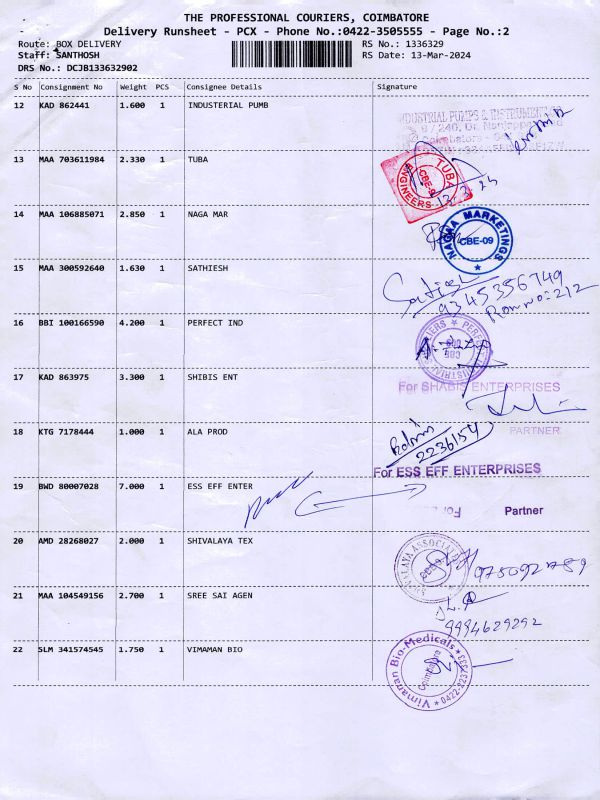 THE PROFESSIONAL COURIERS, COIMBATORE
Delivery Runsheet - PCX - Phone No.:0422-3505555 - Page No.:2
Route: BOX DELIVERY
RS No.: 1336329
Staff: SANTHOSH
RS Date: 13-Mar-2024
DRS No.: DCJB133632902
S No Consignment No Weight PCS Consignee Details Signature
12 KAD 862441 1.600 1 INDUSTERIAL PUMB
INDUSTRIAL PUMPS & INSTRUMENTS
13 MAA 703611984 2.330 1 TUBA
TUBA ENGINEERS CBE-9
13.3.24
14 MAA 106885071 2.850 1 NAGA MAR
NAGNA MARKETINGS CBE-09
15 MAA 300592640 1.630 1 SATHIESH
9345356749
Room no: 212
16 BBI 100166590 4.200 1 PERFECT IND
17 KAD 863975 3.300 1 SHIBIS ENT
For SHABIS ENTERPRISES
18 KTG 7178444 1.000 1 ALA PROD
PARTNER
Admin
2236154
For ESS EFF ENTERPRISES
19 BWD 80007028 7.000 1 ESS EFF ENTER
Partner
20 AMD 28268027 2.000 1 SHIVALAYA TEX
SHIVALAYA ASSOCIATES
21 MAA 104549156 2.700 1 SREE SAI AGEN
9994629292
22 SLM 341574545 1.750 1 VIMAMAN BIO
Vimanan Bio-Medicals
Coimbatore